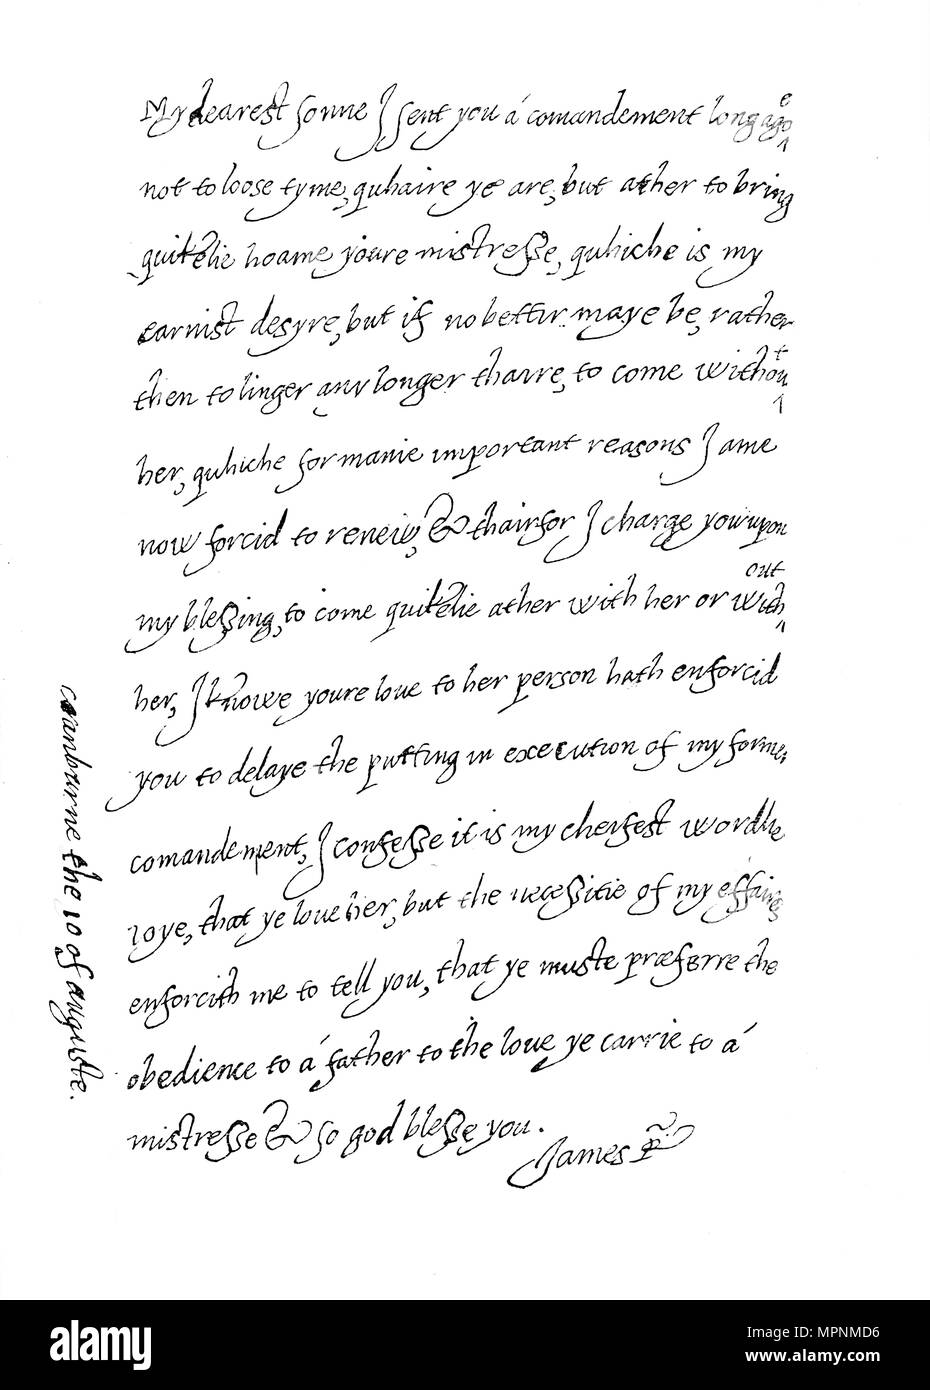 My dearest sonne I sent you á comandement longe ago
not to loose tyme, quhaire ye are, but ather to bring
quikelie hoame youre mistresse, quhiche is my
earnist desyre, but if no bettir maye be, rather
then to linger any longer thaire, to come without
her, quhiche for manie important reasons I ame
now forcid to renew, & thairfor I charge you upon
my blessing, to come quikelie ather with her or without
her, I knowe youre love to her person hath enforcid
you to delaye the putting in execution of my former
comandement, I confesse it is my cheifest wordlie
ioye, that ye love her, but the necessitie of my effaires
enforcith me to tell you, that ye muste præferre the
obedience to á father to the love ye carrie to á
mistresse & so god blesse you.
James R
cranburne the 10 of auguste.
alamy
Image ID: MPNMD6
www.alamy.com